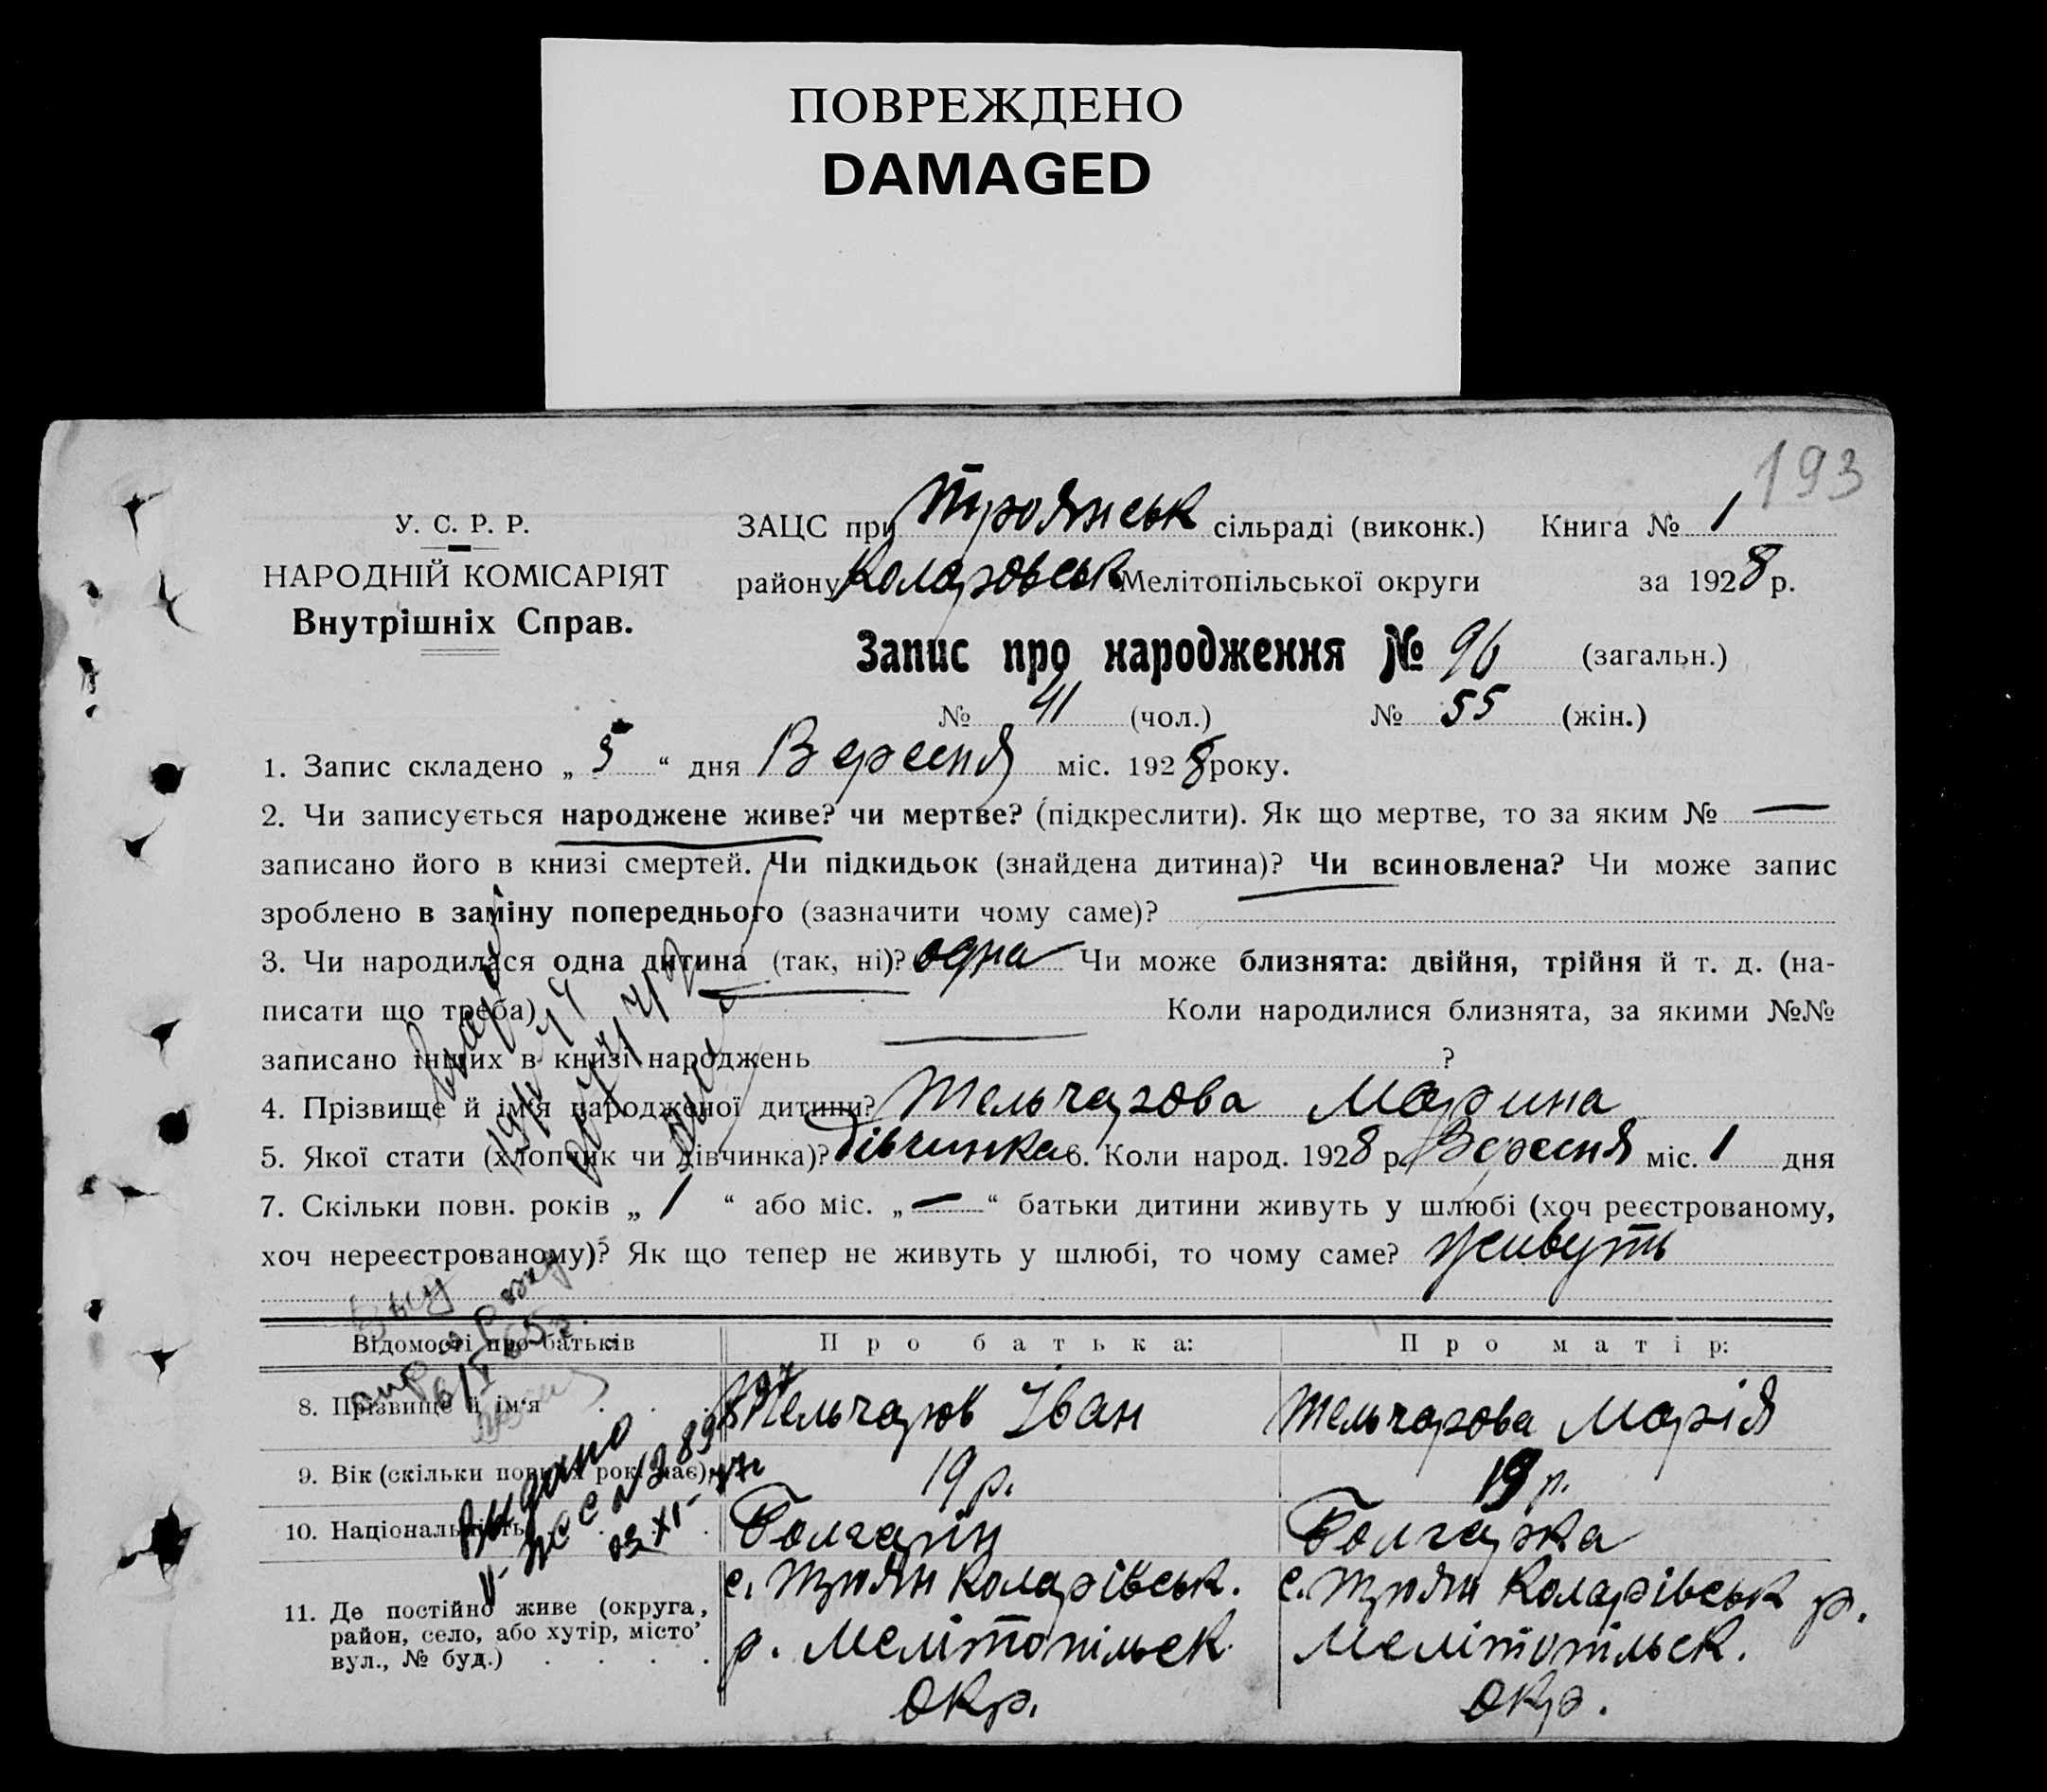 ПОВРЕЖДЕНО
DAMAGED
193
У. С. Р. Р.
НАРОДНІЙ КОМІСАРІЯТ
Внутрішніх Справ.
ЗАЦС при Троянськ сільраді (виконк.) Книга № 1
району Коларовськ Мелітопільської округи за 1928 р.
Запис про народження № 96 (загальн.)
№ 41 (чол.) № 55 (жін.)
1. Запис складено „ 5 “ дня Вересня міс. 1928 року.
2. Чи записується народжене живе? чи мертве? (підкреслити). Як що мертве, то за яким № —
записано його в книзі смертей. Чи підкидьок (знайдена дитина)? Чи всиновлена? Чи може запис
зроблено в заміну попереднього (зазначити чому саме)?
3. Чи народилася одна дитина (так, ні)? одна Чи може близнята: двійня, трійня й т. д. (на-
писати що треба) Коли народилися близнята, за якими №№
записано інших в книзі народжень ?
4. Прізвище й ім'я народженої дитини? Тельчарова Марина
5. Якої стати (хлопчик чи дівчинка)? дівчинка 6. Коли народ. 1928 р. Вересня міс. 1 дня
7. Скільки повн. років „ 1 “ або міс. „ — “ батьки дитини живуть у шлюбі (хоч реєстрованому,
хоч нереєстрованому)? Як що тепер не живуть у шлюбі, то чому саме? живуть
Відомості про батьків Про батька: Про матір:
8. Прізвище й ім'я Тельчаров Іван Тельчарова Марія
9. Вік (скільки повних рок. має) 19 р. 19 р.
10. Національність Болгарін Болгарка
11. Де постійно живе (округа, район, село, або хутір, місто' вул., № буд.)
с. Троян Коларівськ. р. Мелітопільськ. окр.
с. Троян Коларівськ р. Мелітопільськ. окр.
Выдано